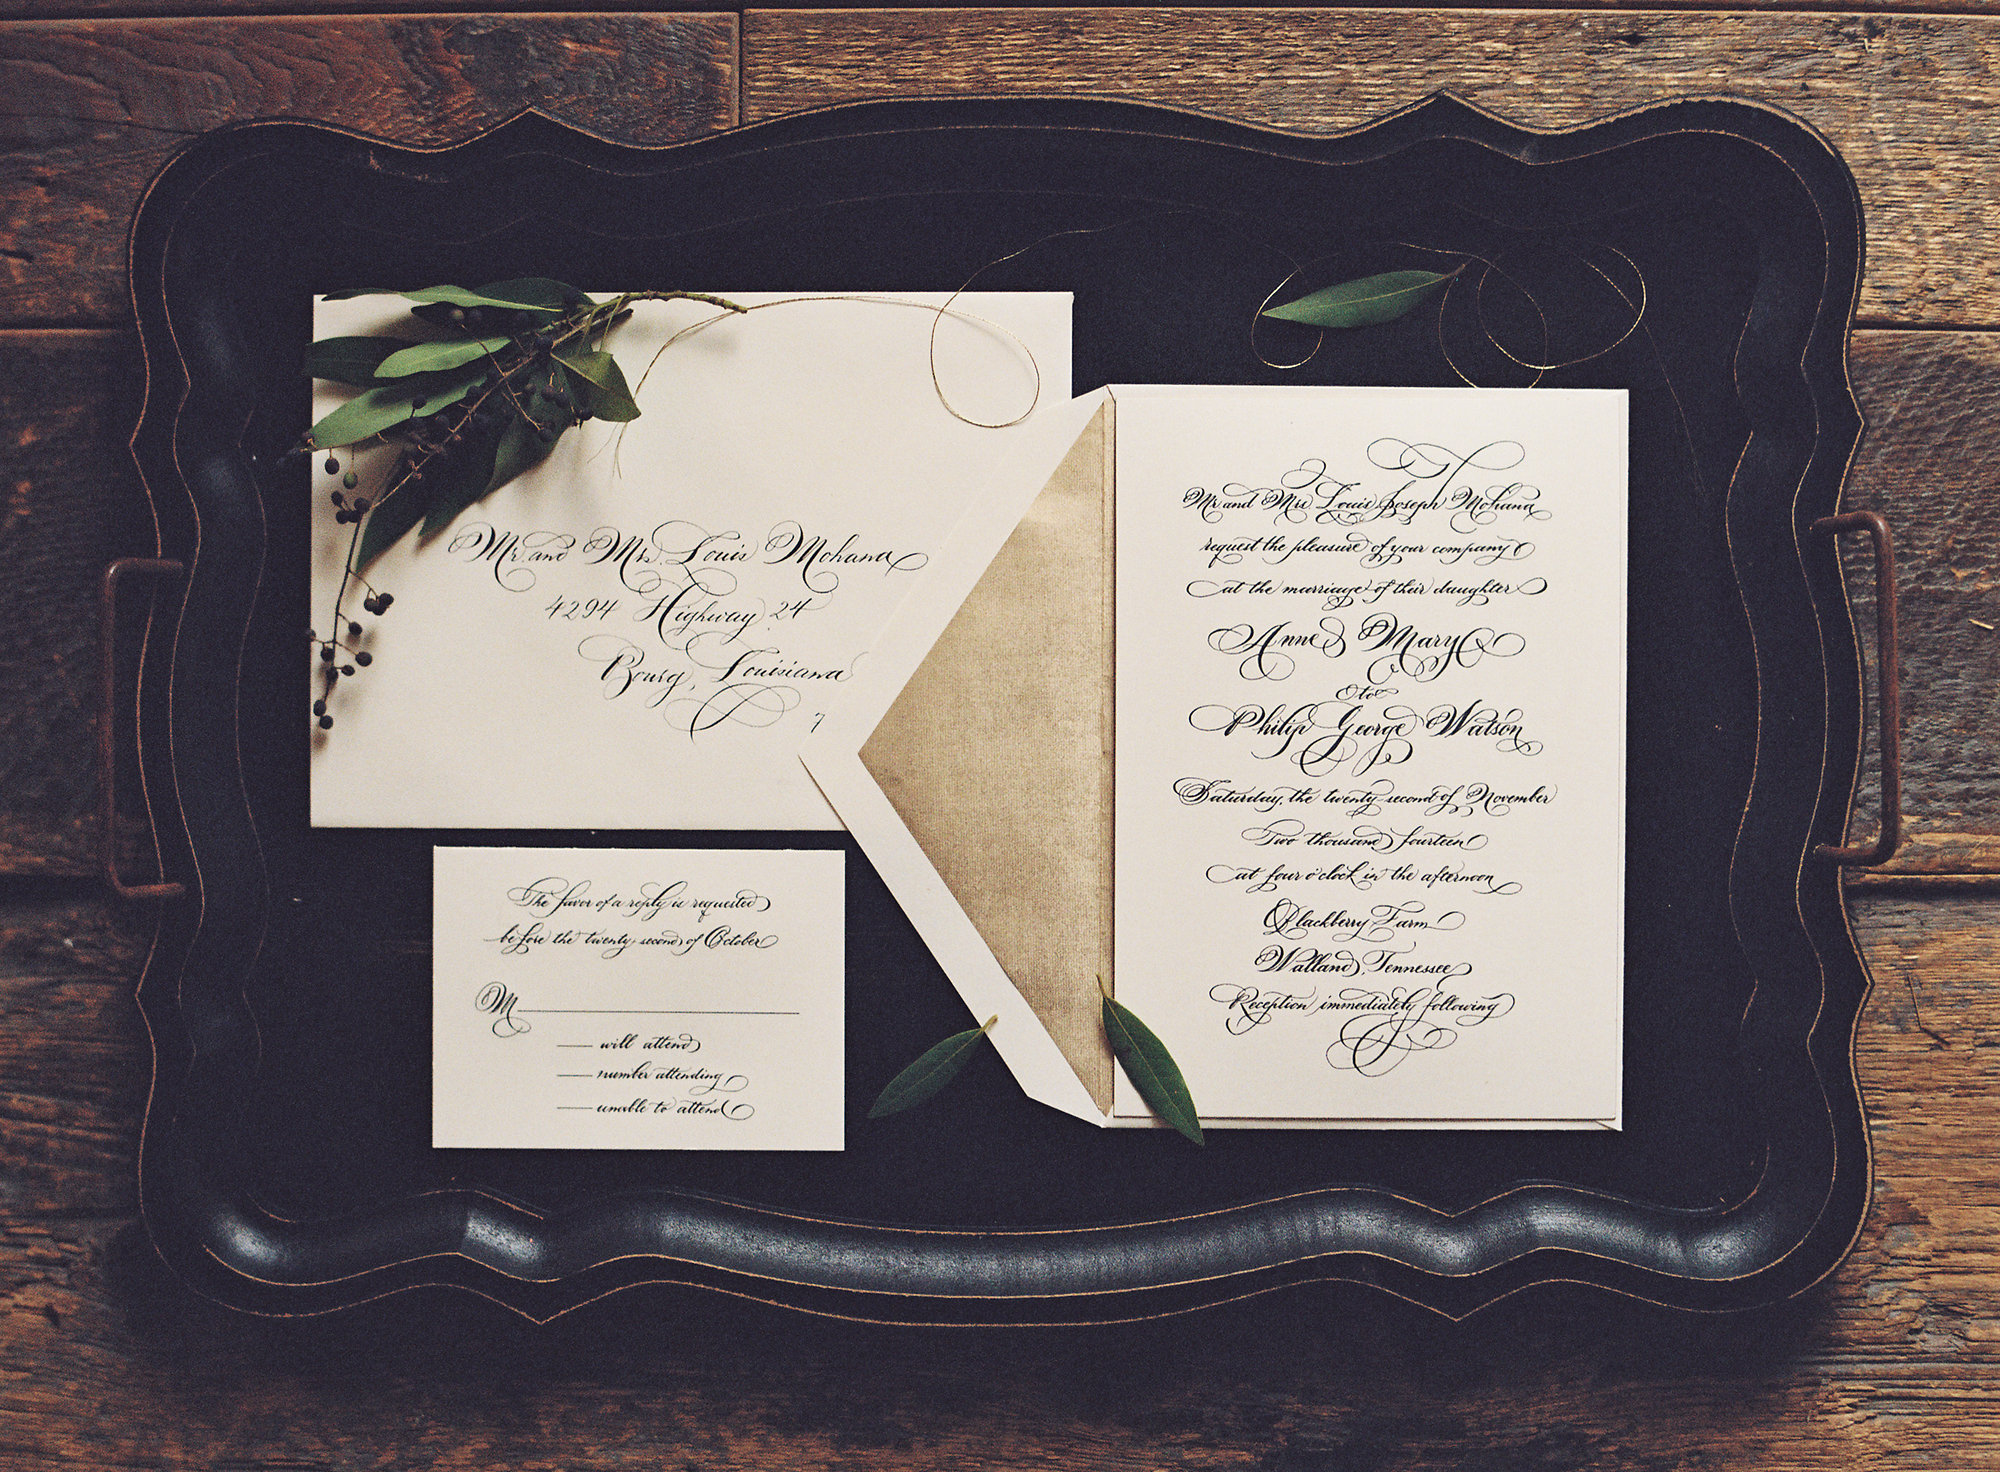 Mr. and Mrs. Louis Mohana
4294 Highway 24
Bourg, Louisiana
7
The favor of a reply is requested
before the twenty second of October
M
will attend
number attending
unable to attend
Mr and Mrs Louis Joseph Mohana
request the pleasure of your company
at the marriage of their daughter
Anne Mary
to
Philip George Watson
Saturday, the twenty-second of November
Two thousand fourteen
at four o'clock in the afternoon
Blackberry Farm
Walland, Tennessee
Reception immediately following